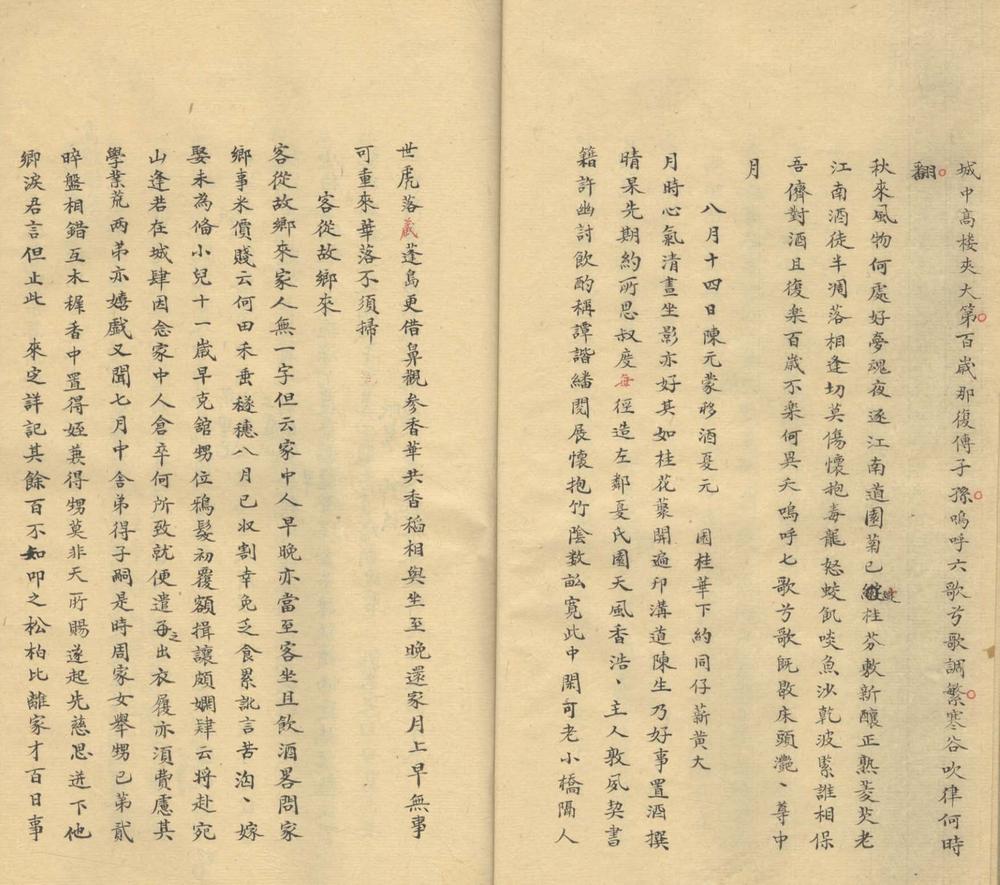 城中高楼夹大第百歲那復傳子孫嗚呼六歌兮歌調繁寒谷吹律何時
翻
秋來風物何處好夢魂夜逐江南道園菊已綻桂芬敷新釀正熟菱芡老
江南酒徒半凋落相逢切莫傷懷抱毒龍怒蛟飢啖魚沙乾波累誰相保
吾儕對酒且復楽百歲不楽何異夭嗚呼七歌兮歌既散床頭灔、尊中
月
八月十四日陳元蒙移酒戛元圃桂華下約同仔薪黄大
月時心氣清晝坐影亦好其如桂花蘂開遍邗溝道陳生乃好事置酒撰
晴杲先期約所思叔度每徑造左鄰戛氏園天風香浩、主人敦夙契書
籍許幽討飲酌稱譚諧繙閱展懷抱竹陰数畝寛此中閑可老小橋隔人
世虎落歲蓬島更借鼻觀参香華共香稻相與坐至晚還家月上早無事
可重來華落不須掃
客從故鄉來
客從故鄉來家人無一字但云家中人早晚亦當至客坐且飲酒畧問家
鄉事米價賤云何田禾垂穟穗八月已収割幸免乏食累訛言苦洶、嫁
娶未為俻小兒十一歲早克舘甥位鴉髮初覆額揖讓頗嫻肄云将赴宛
山逢若在城肆因念家中人倉卒何所致就便遣毎之出衣履亦須費慮其
學業荒两弟亦嬉戲又聞七月中舍弟得子嗣是時周家女舉甥已第貳
晬盤相錯互木樨香中置得姪蒹得甥莫非天所賜遂起先慈思迸下他
鄉淚君言但止此 來定詳記其餘百不如叩之松柏比離家才百日事